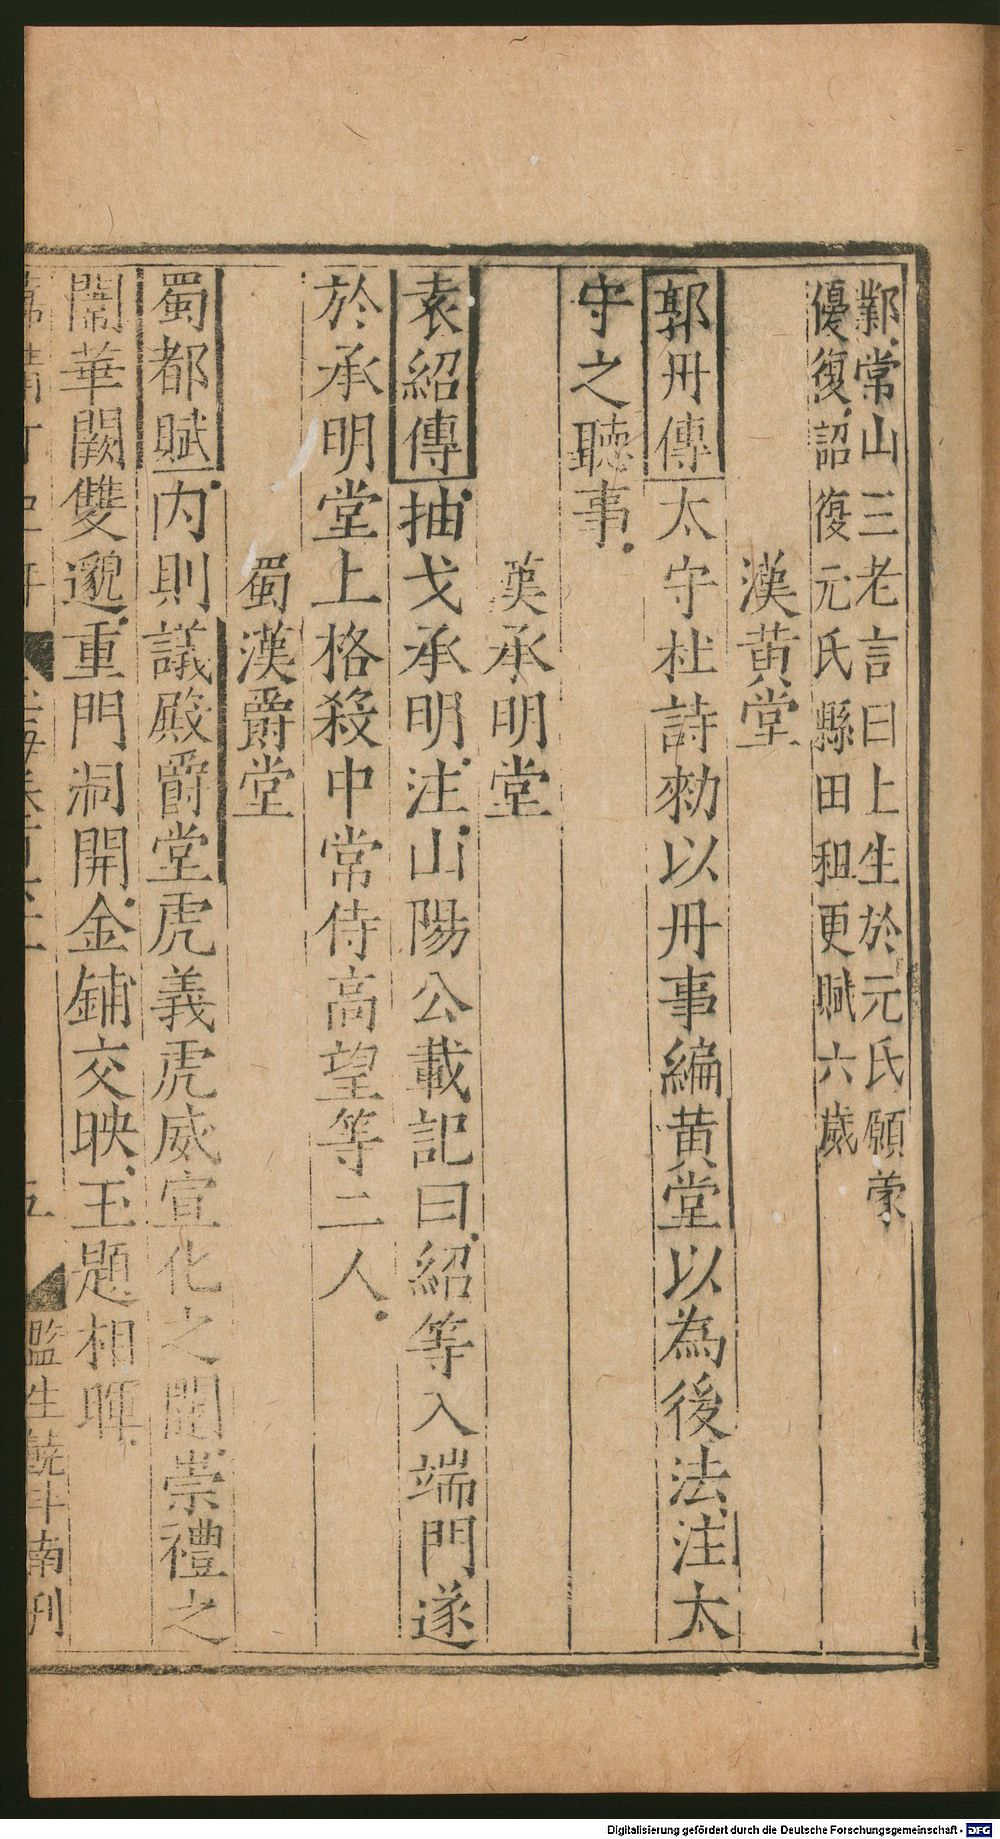 鄴常山三老言曰上生於元氏願蒙
優復詔復元氏縣田租更賦六歲
漢黃堂
郭丹傳太守杜詩勑以丹事編黃堂以為後法注太
守之聽事
漢承明堂
袁紹傳抽戈承明注山陽公載記曰紹等入端門遂
於承明堂上格殺中常侍高望等二人
蜀漢爵堂
蜀都賦內則議殿爵堂虎義虎威宣化之闥崇禮之
闈華闕雙邈重門洞開金鋪交映玉題相暉
嘉靖丁巳年 玉海卷百六十一 五 監生饒斗南刊
Digitalisierung gefördert durch die Deutsche Forschungsgemeinschaft - DFG